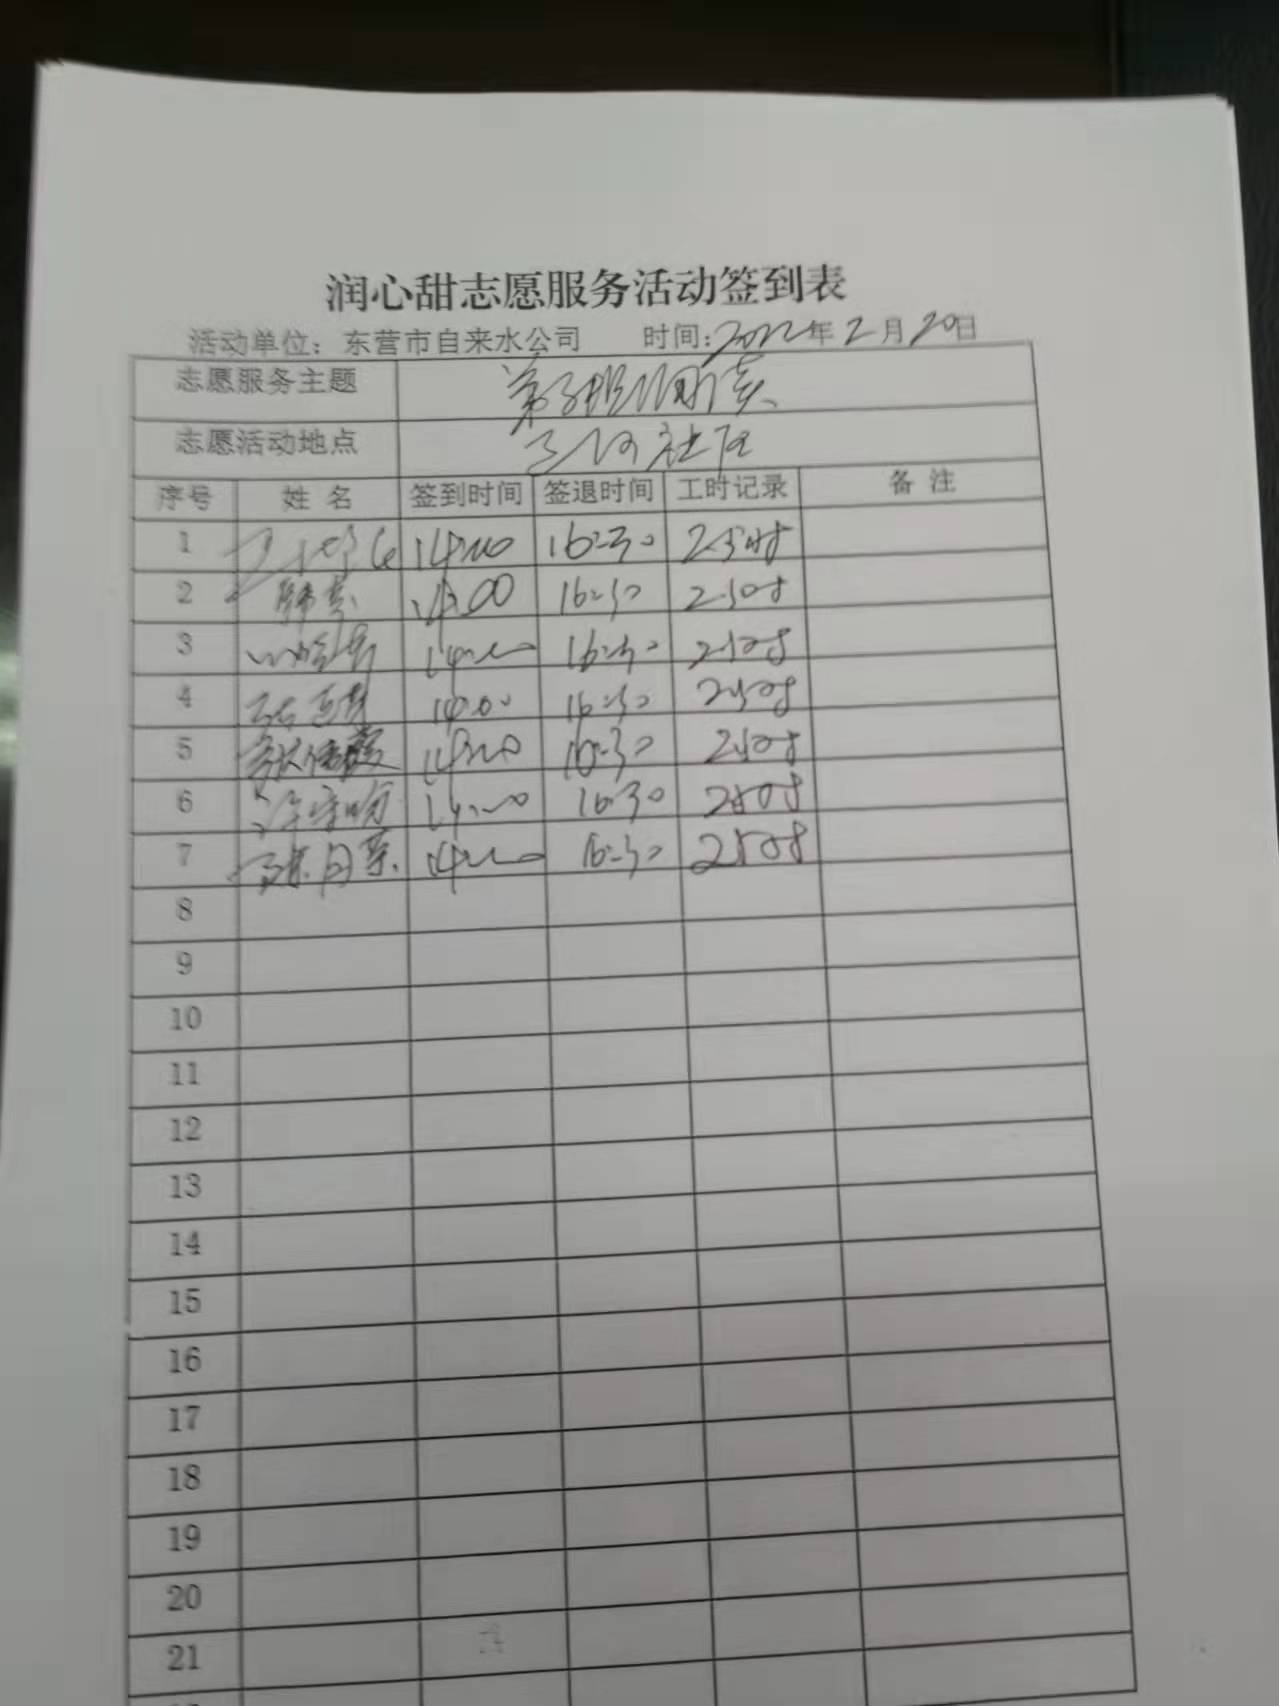 润心甜志愿服务活动签到表
活动单位：东营市自来水公司 时间：2022年2月20日
志愿服务主题
志愿活动地点 社区
序号 姓名 签到时间 签退时间 工时记录 备注
1 14:00 16:30 2.5时
2 韩 14:00 16:30 2.5时
3 14:00 16:30 2.5时
4 14:00 16:30 2.5时
5 14:00 16:30 2.5时
6 14:00 16:30 2.5时
7 14:00 16:30 2.5时
8
9
10
11
12
13
14
15
16
17
18
19
20
21